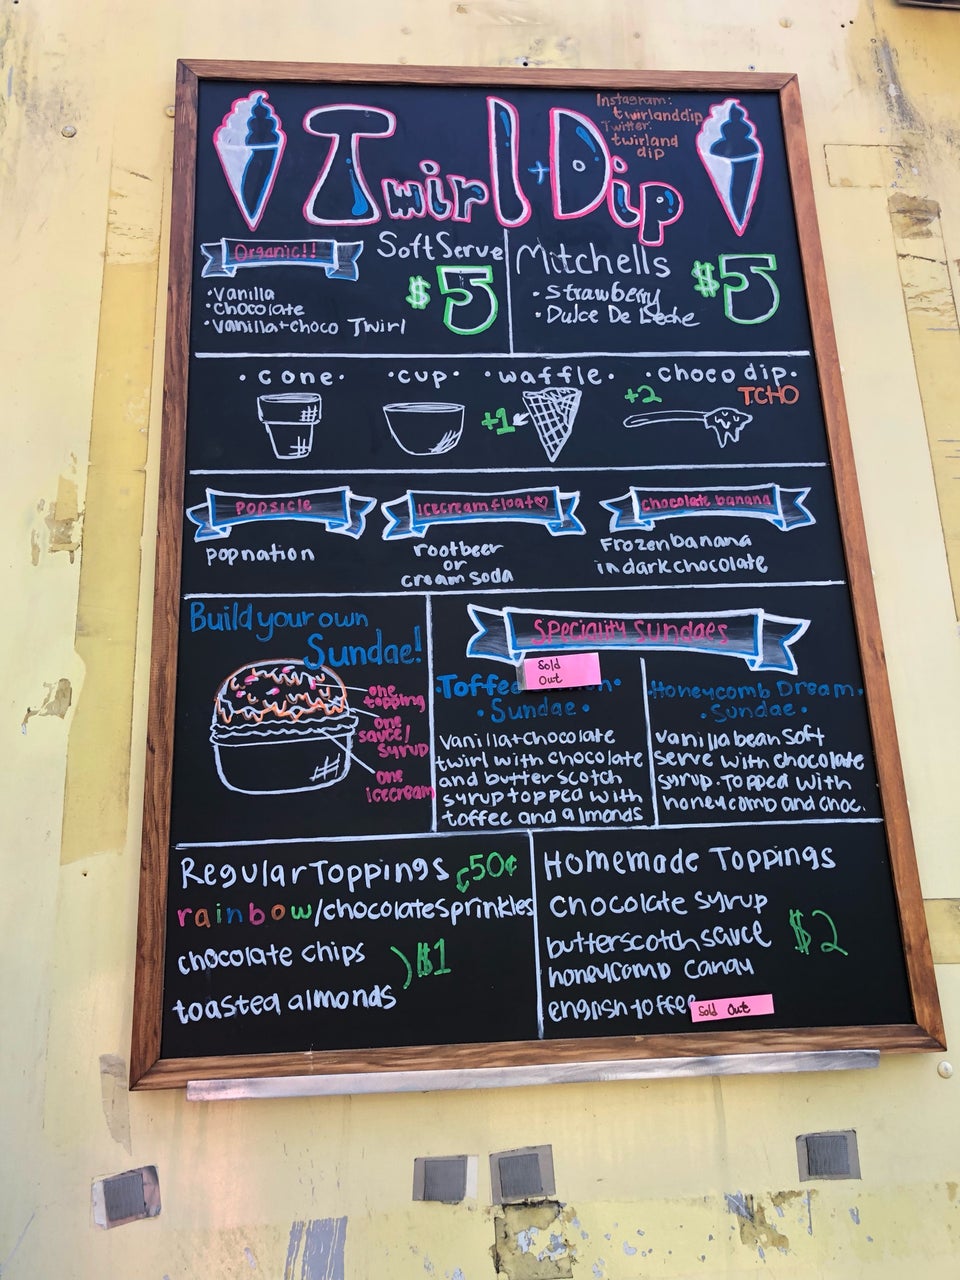 Twirl + Dip
Instagram:
twirlanddip
Twitter:
twirland
dip
Organic!!
Soft Serve
$5
•Vanilla
•Chocolate
•Vanilla+choco Twirl
Mitchells
$5
•Strawberry
•Dulce De Leche
•cone•
•cup•
•waffle•
+1
•choco dip•
+2
TCHO
Popsicle
popnation
icecream float♡
rootbeer
or
cream soda
chocolate banana
Frozen banana
in dark chocolate
Build your own
Sundae!
one
topping
one
sauce/
syrup
one
icecream
Speciality Sundaes
Sold
Out
•Toffee
•Sundae•
Vanilla+chocolate
twirl with chocolate
and butterscotch
syrup topped with
toffee and almonds
•Honeycomb Dream•
•Sundae•
Vanilla bean Soft
Serve with chocolate
syrup. Topped with
honeycomb and choc.
Regular Toppings
50¢
rainbow/chocolate sprinkles
chocolate chips
$1
toasted almonds
Homemade Toppings
Chocolate syrup
butterscotch sauce
$2
honeycomb candy
english toffee
Sold Out